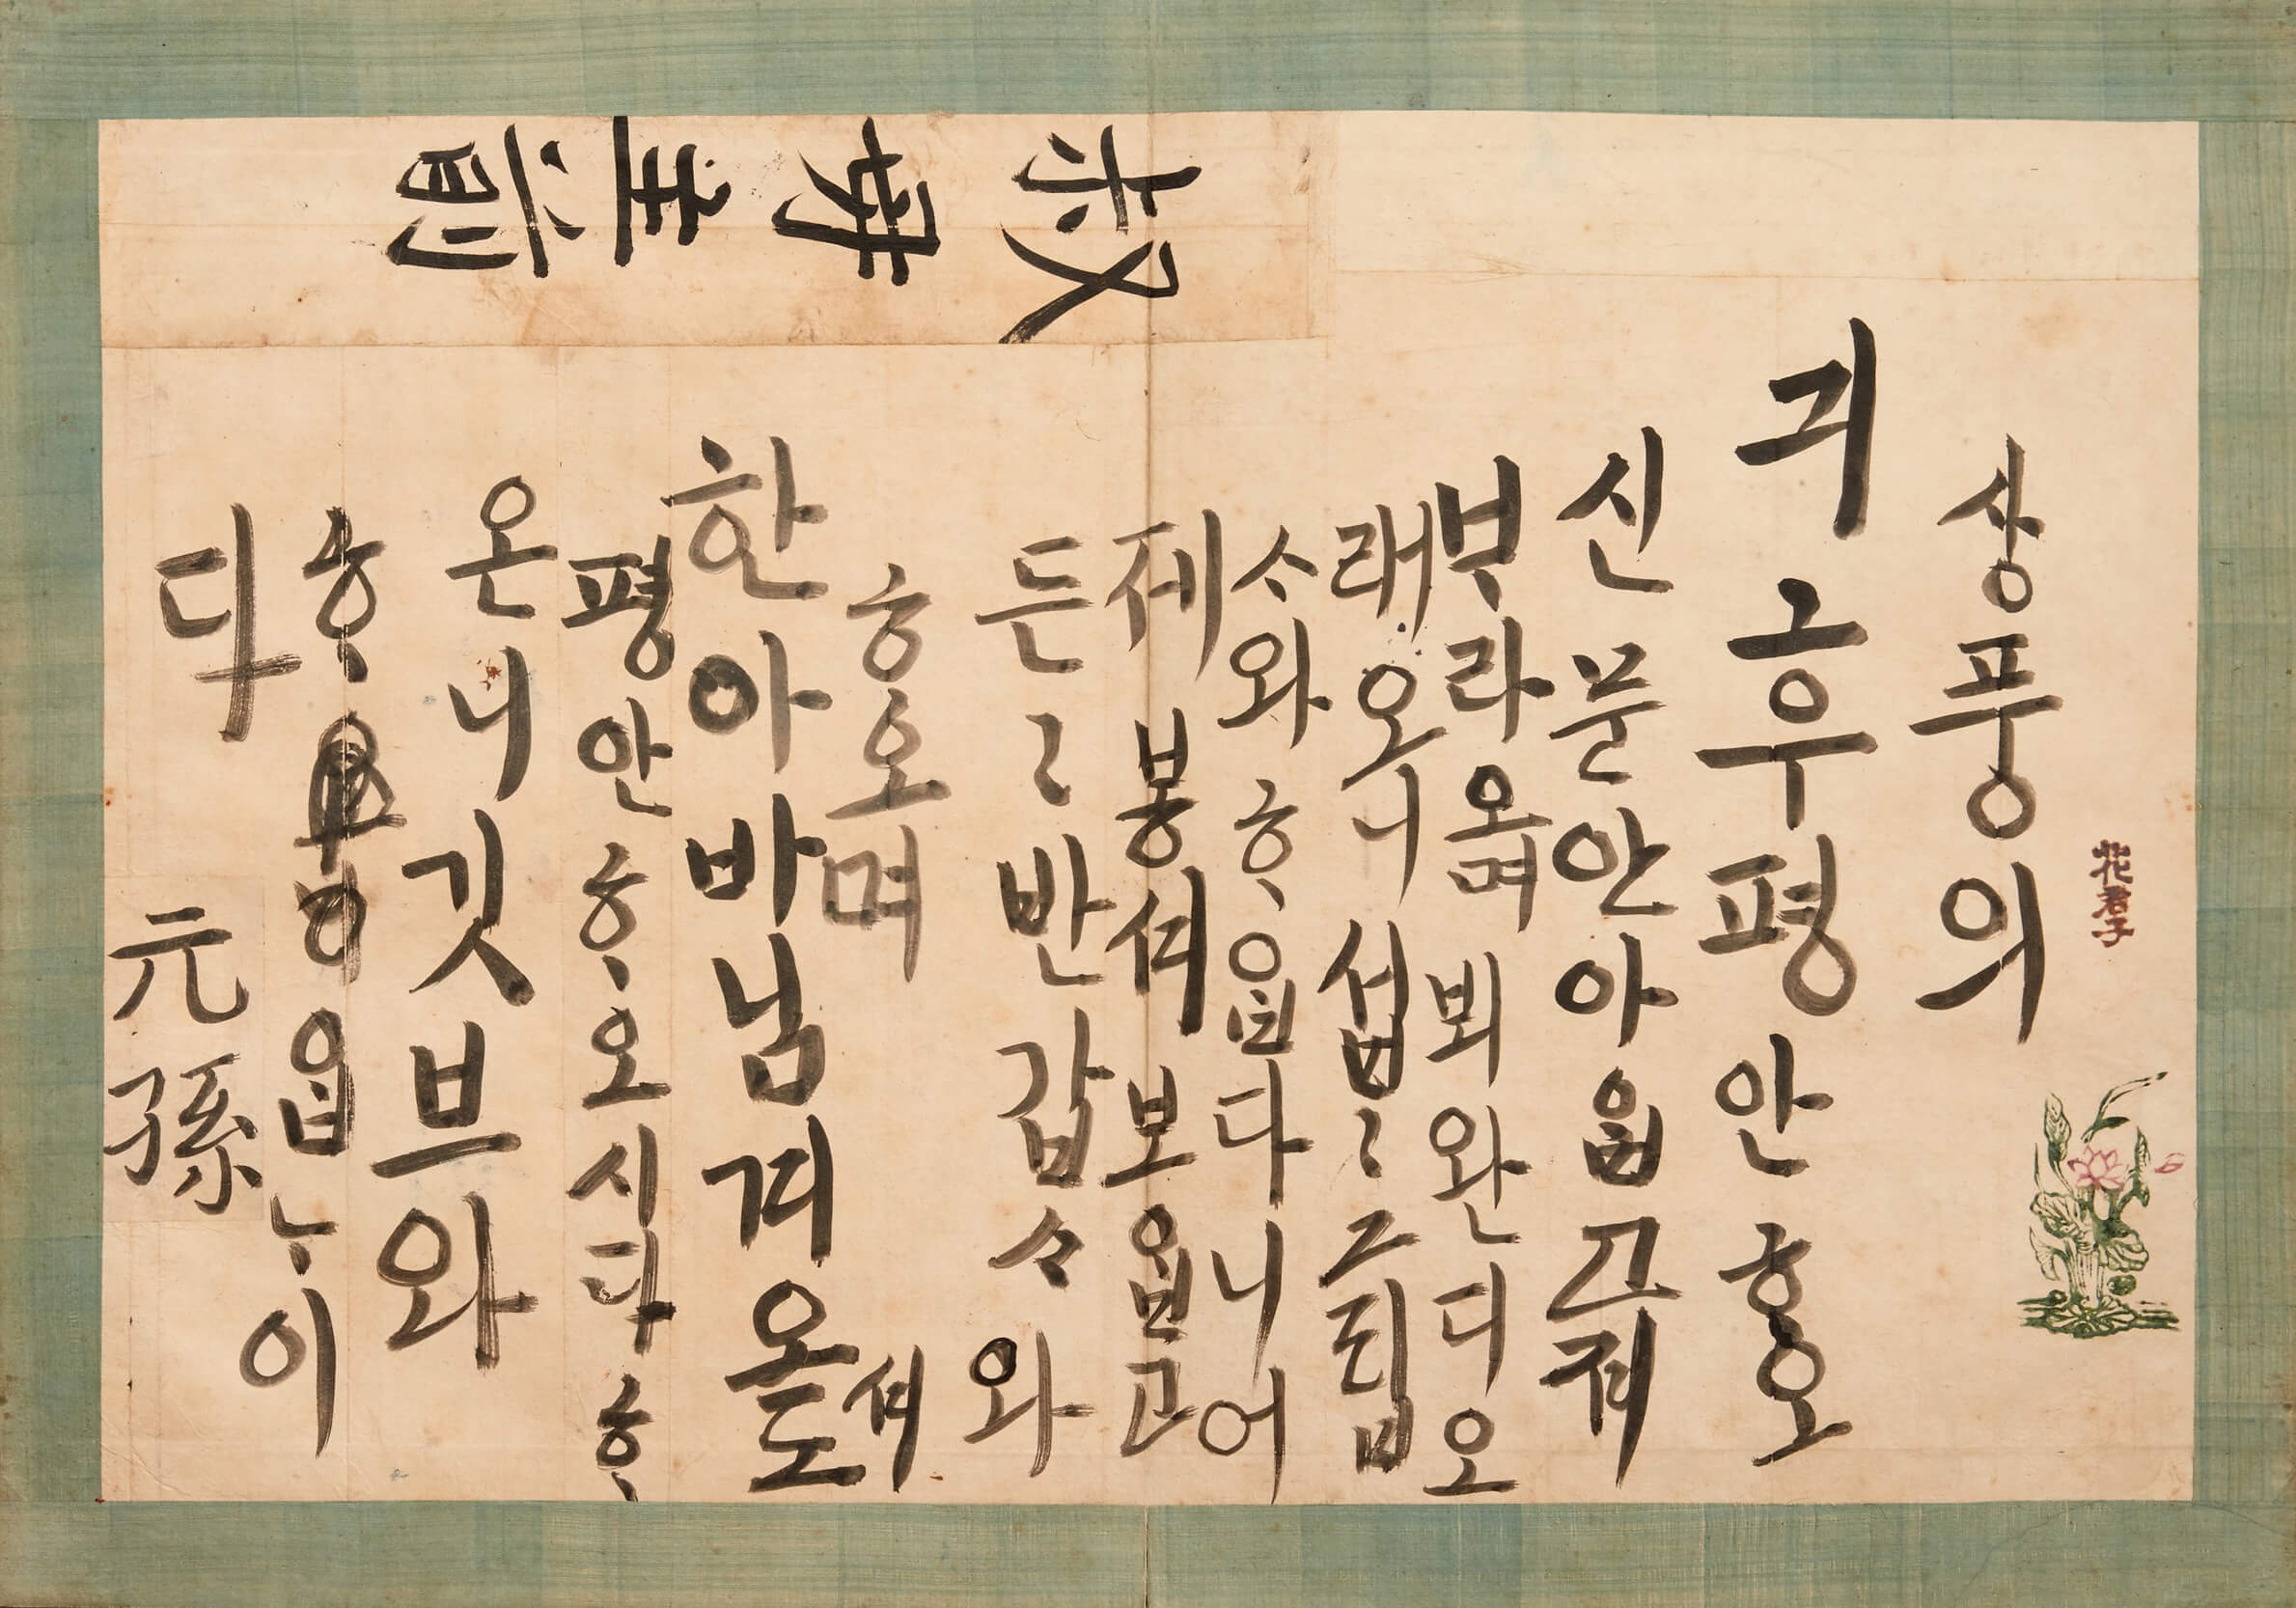 花君子
叔母主前
상풍의
긔후평안ᄒᆞ오
신문안아ᄋᆞᆸ고져
ᄇᆞ라오며뵈완디오
래오니섭〻그립
ᄉᆞ와ᄒᆞᄋᆞᆸ다니어
제봉셔보ᄋᆞᆸ고
든〻반갑ᄉᆞ와
ᄒᆞ오며
한아바님겨오셔도
평안ᄒᆞ오시다ᄒᆞ
온니깃브와
ᄒᆞᄋᆞᆸᄂᆞ이
다
元孫